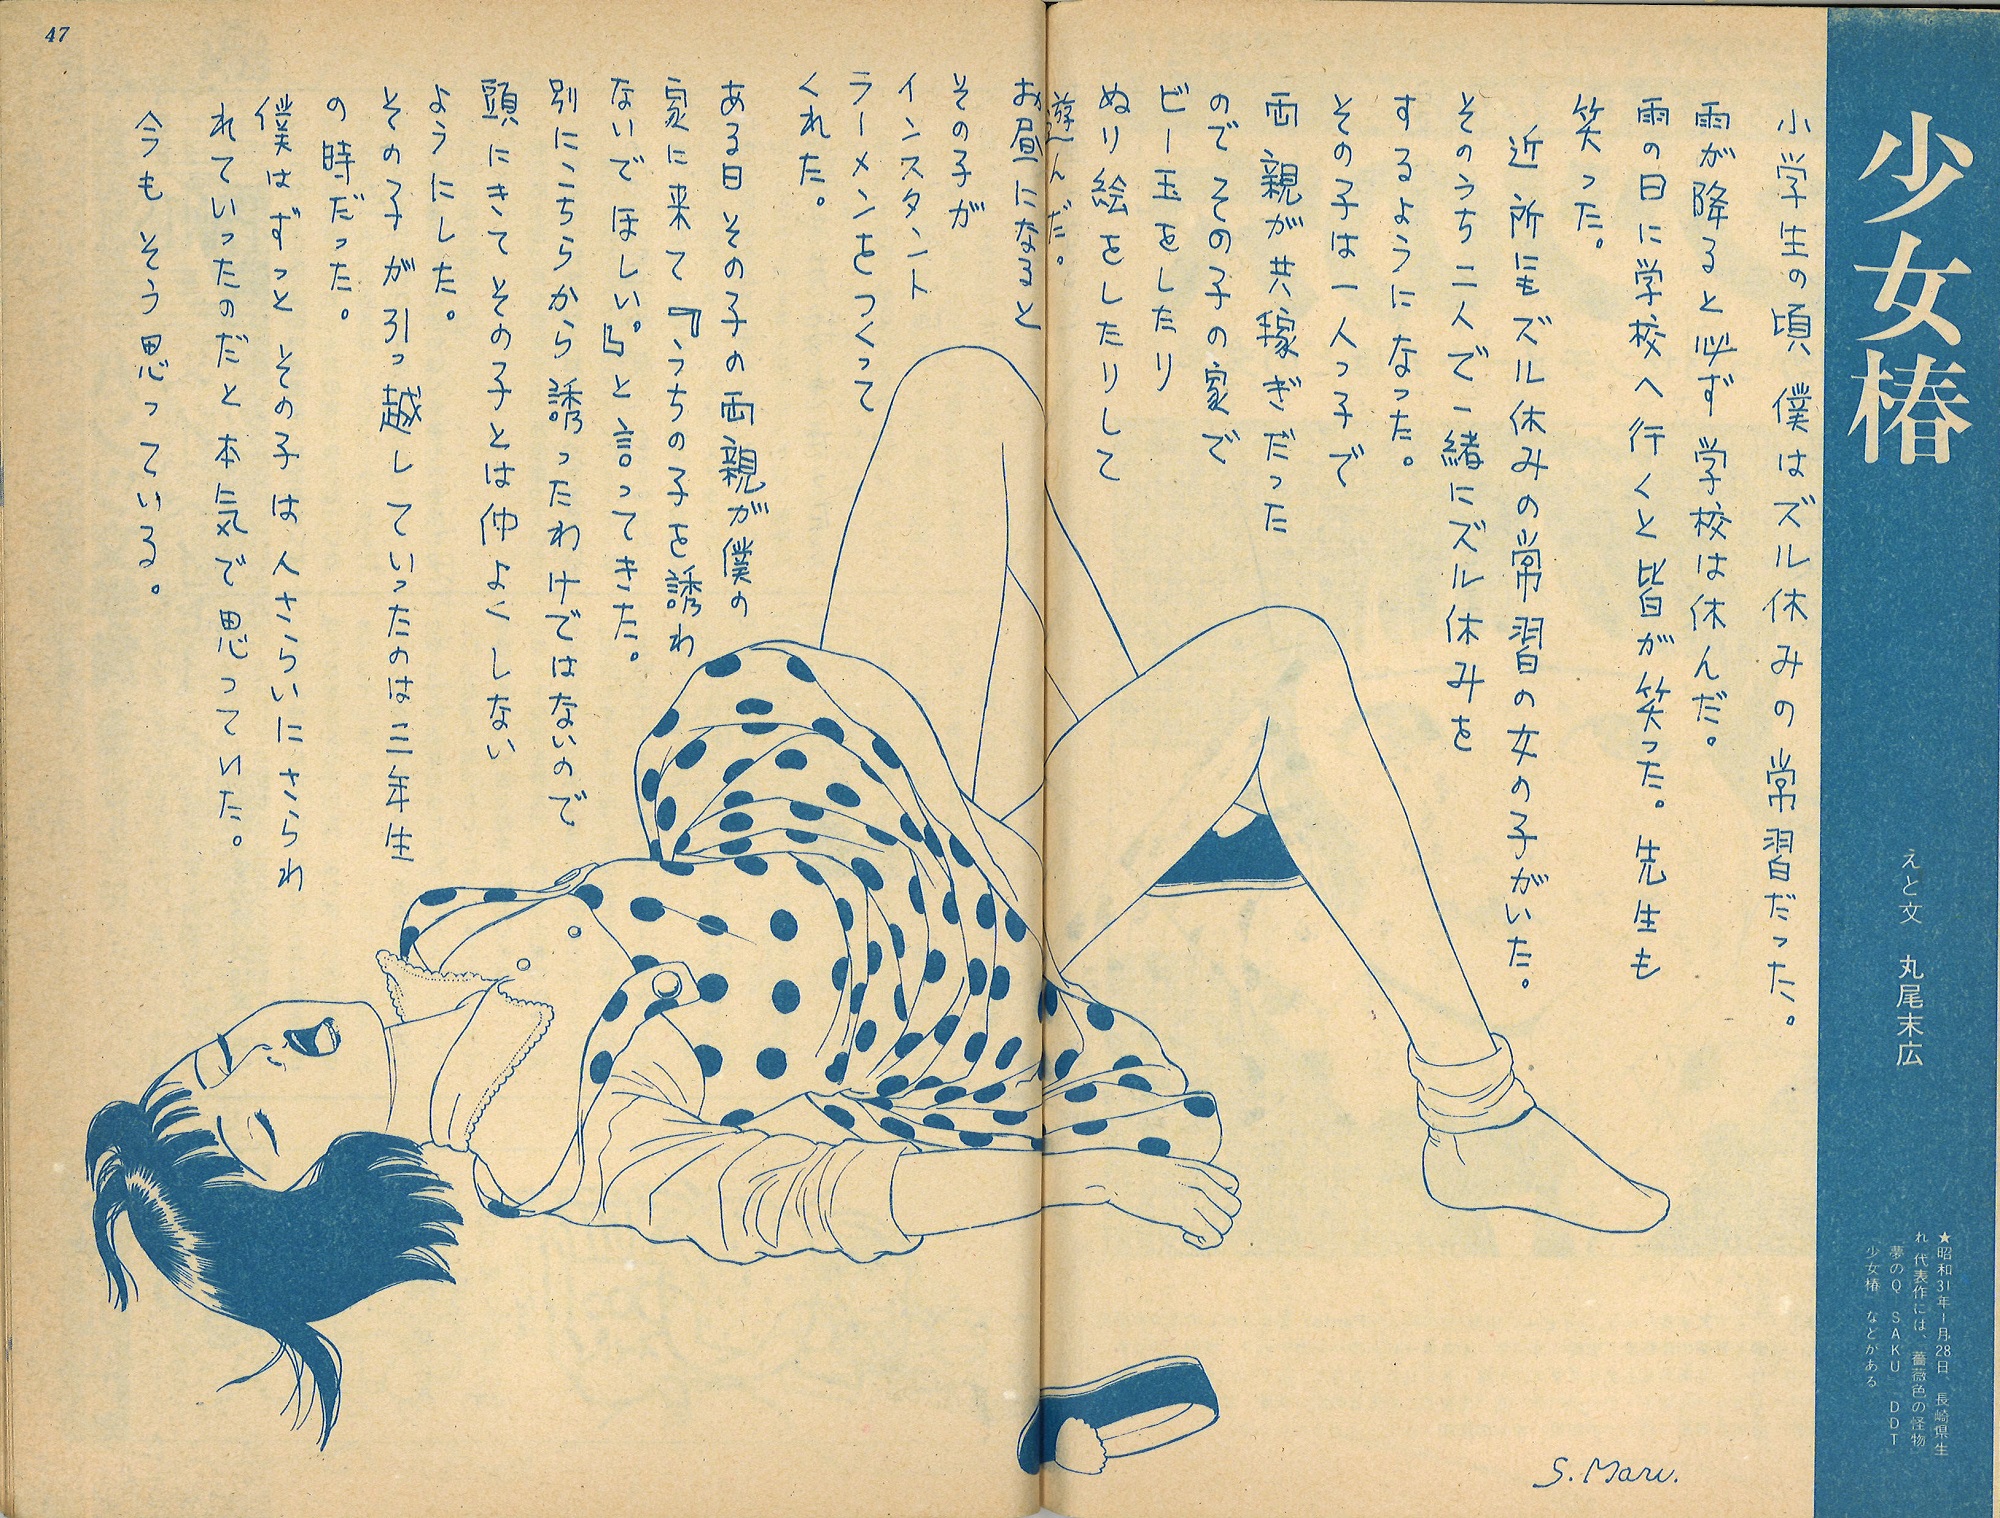 少女椿
えと文　丸尾末広
★昭和31年1月28日、長崎県生
れ　代表作には、薔薇色の怪物
夢のQ　SAKU　DDT
少女椿　などがある
小学生の頃、僕はズル休みの常習だった。
雨が降ると必ず学校は休んだ。
雨の日に学校へ行くと皆が笑った。先生も
笑った。
近所にもズル休みの常習の女の子がいた。
そのうち二人で一緒にズル休みを
するようになった。
その子は一人っ子で
両親が共稼ぎだった
のでその子の家で
ビー玉をしたり
ぬり絵をしたりして
遊んだ。
お昼になると
その子が
インスタント
ラーメンをつくって
くれた。
ある日その子の両親が僕の
家に来て『うちの子を誘わ
ないでほしい。』と言ってきた。
別にこちらから誘ったわけではないので
頭にきてその子とは仲よくしない
ようにした。
その子が引っ越していったのは三年生
の時だった。
僕はずっとその子は、人さらいにさらわ
れていったのだと本気で思っていた。
今もそう思っている。
S. Maru.
47